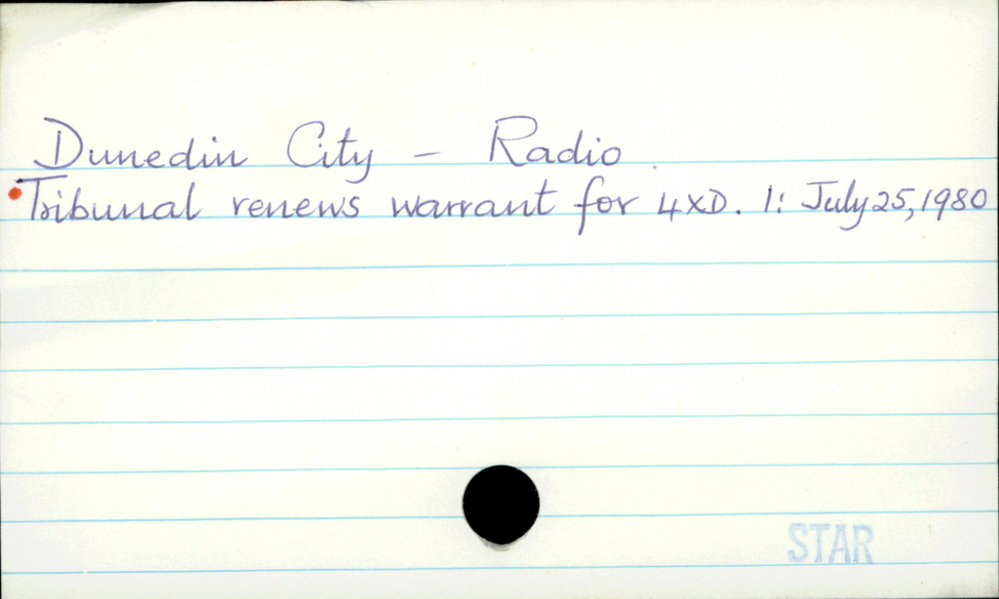 Dunedin City - Radio
Tribunal renews warrant for 4XD. 1: July 25, 1980
STAR